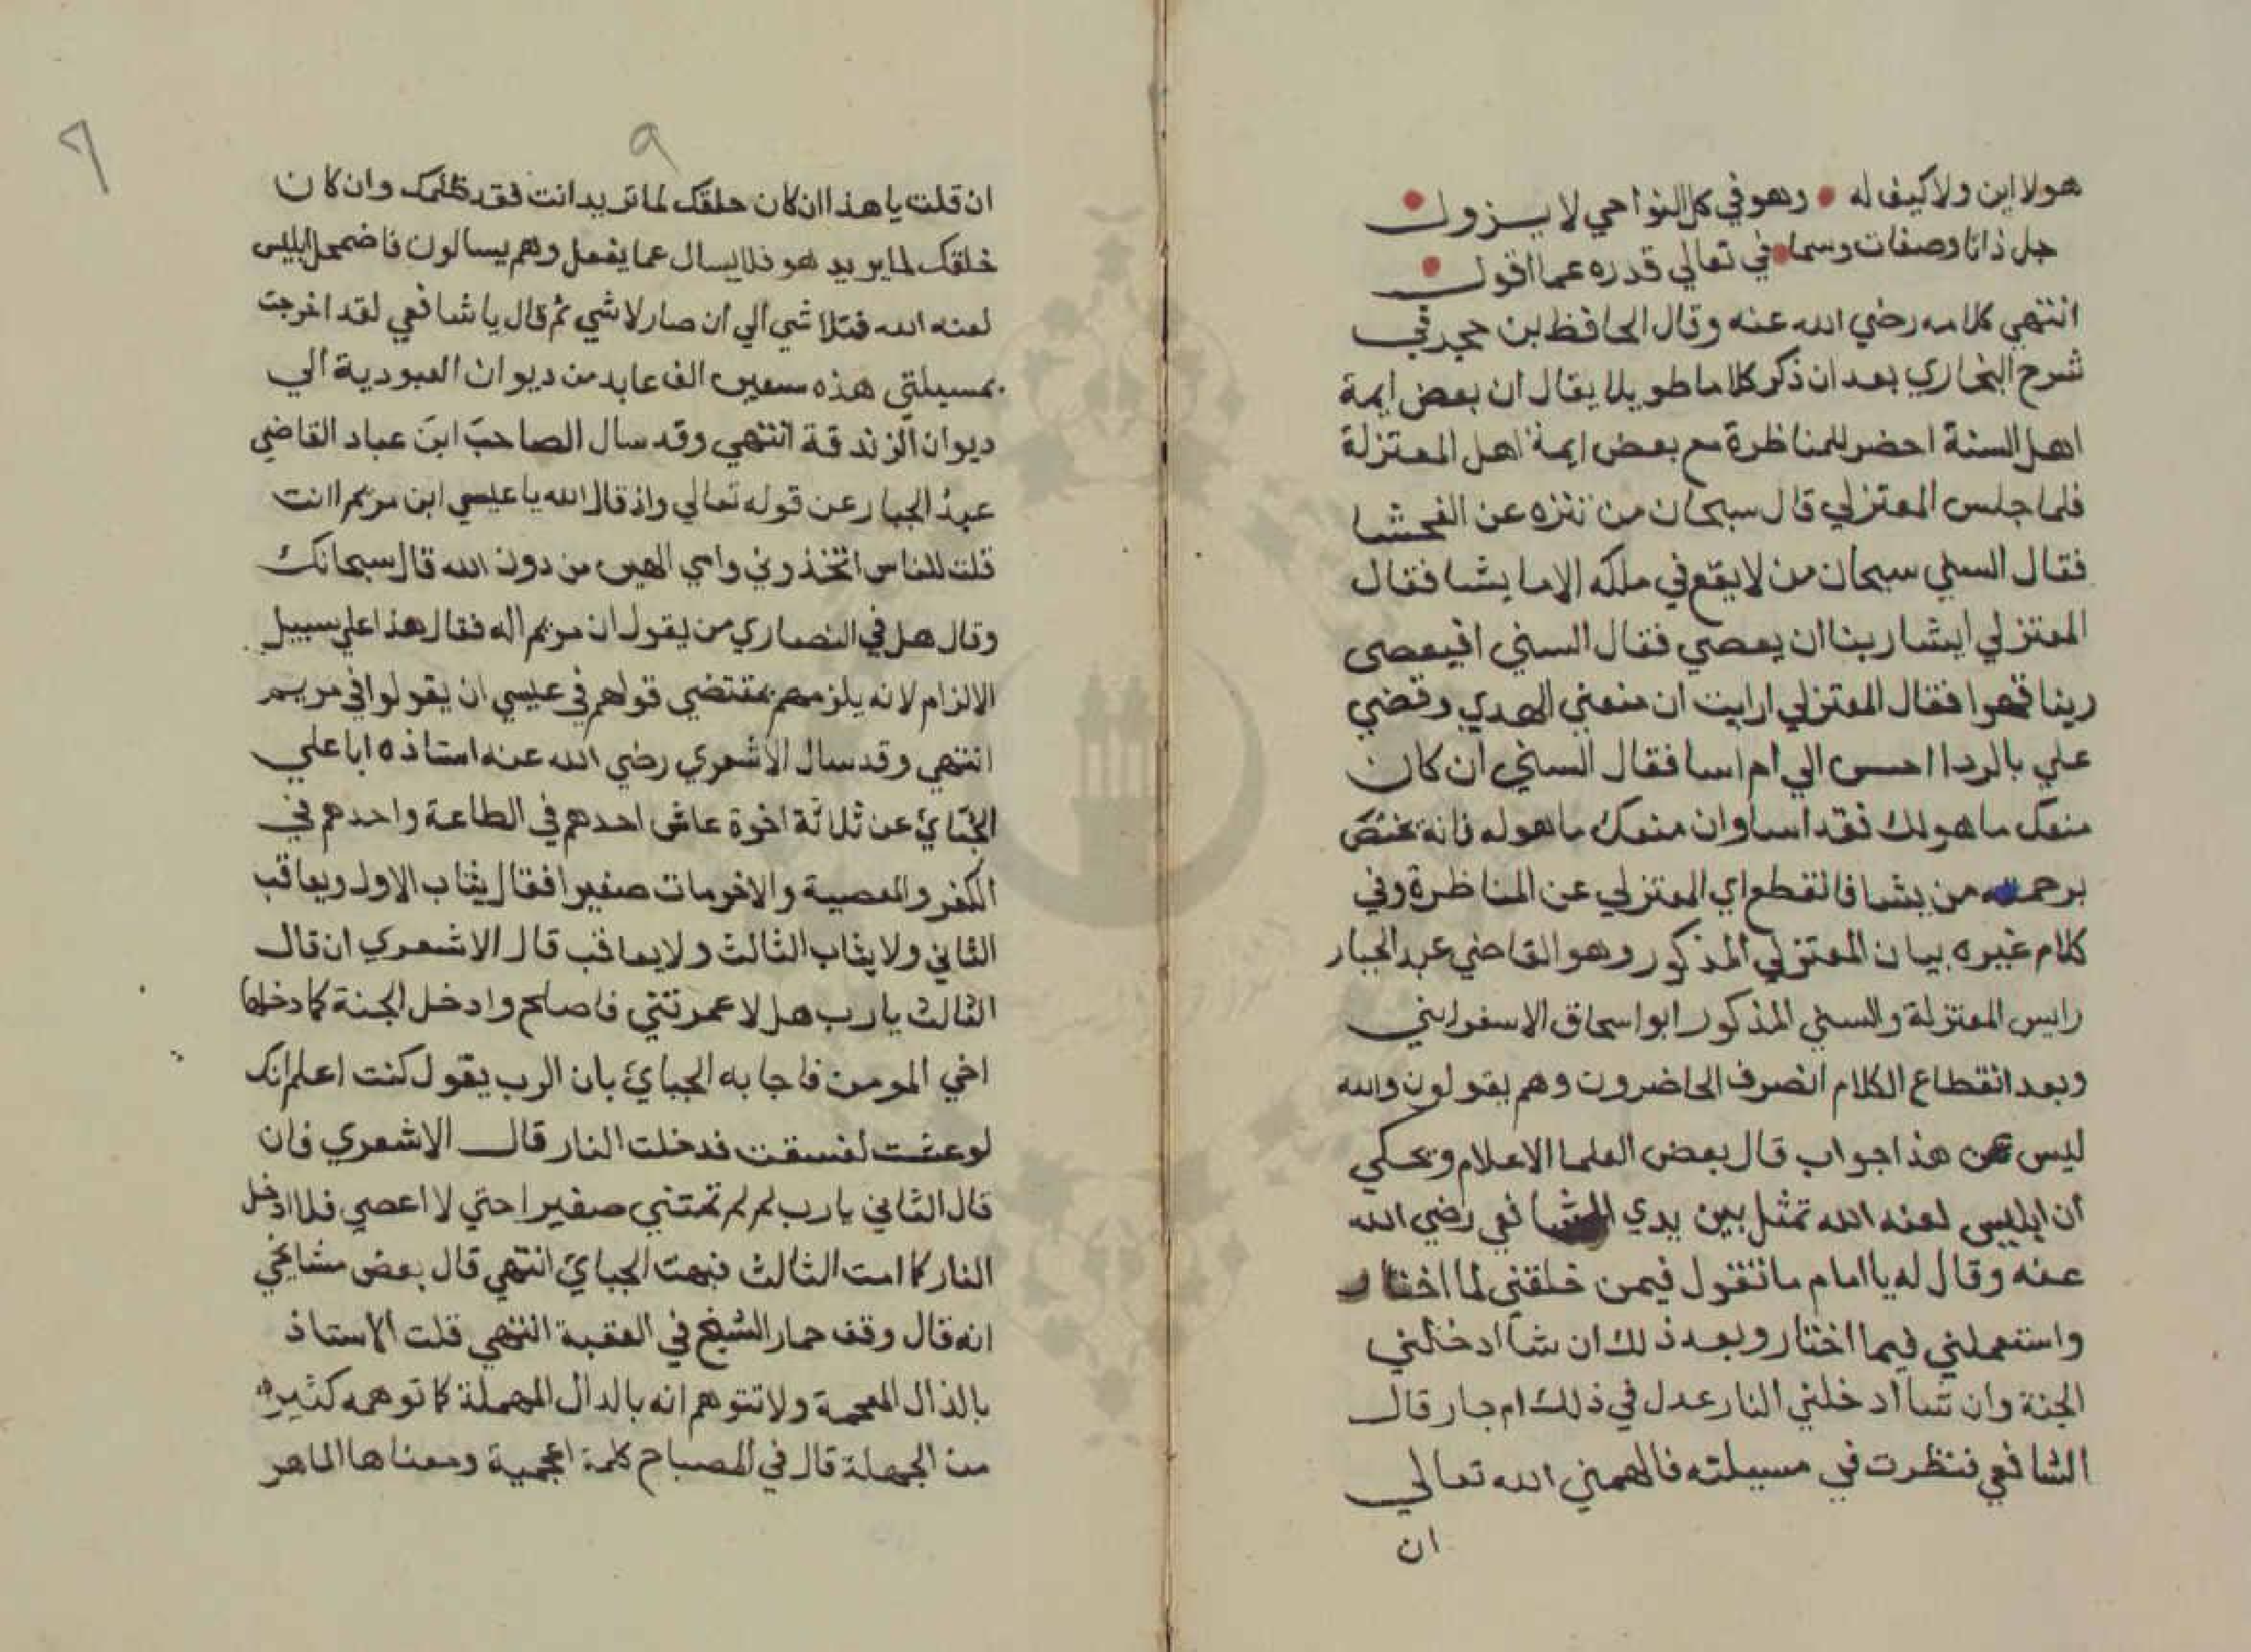 هو لا اين ولا كيف له وهو في كل النواحي لا يزول
جل ذاتا وصفات وسما في تعالي قدره عما اقول
انتهي كلامه رضي الله عنه وقال الحافظ بن حجر في
شرح البخاري بعد ان ذكر كلاما طويلا يقال ان بعض ايمة
اهل السنة احضر للمناظرة مع بعض ايمة اهل المعتزلة
فلما جلس المعتزلي قال سبحان من تنزه عن الفحشا
فقال السني سبحان من لا يقع في ملكه الا ما يشا فقال
المعتزلي ايشا ربنا ان يعصي فقال السني افيعصى
ربنا قهوا فقال المعتزلي ارايت ان منعني الهدي وقضي
علي بالردا احسن الي ام اسا فقال السني ان كان
منعك ما هو لك فقد اسا وان منعك ما هو له فانه يختص
برحمته من يشا فانقطع اي المعتزلي عن المناظرة وفي
كلام غيره بيان المعتزلي المذكور وهو القاضي عبد الجبار
رايس المعتزلة والسني المذكور ابو اسحاق الاسفرايني
وبعد انقطاع الكلام انصرف الحاضرون وهم يقولون والله
ليس عن هذا جواب قال بعض العلما الاعلام ويحكي
ان ابليس لعنه الله تمثل بين يدي الشافعي رضي الله
عنه وقال له يا امام ما تقول فيمن خلقني لما اختار
واستعملني فيما اختار وبعد ذلك ان شا ادخلني
الجنة وان شا ادخلني النار عدل في ذلك ام جار قال
الشافعي فنظرت في مسيلته فالهمني الله تعالي
ان
٩
٩
ان قلت يا هذا ان كان خلقك لما تريد انت فقد ظلمك وان كان
خلقك لما يريد هو فلا يسال عما يفعل وهم يسالون فاضمحل ابليس
لعنه الله فتلاشي الي ان صار لا شي ثم قال يا شافعي لقد اخرجت
بمسيلتي هذه سبعين الف عابد من ديوان العبودية الي
ديوان الزندقة انتهي وقد سال الصاحب ابن عباد القاضي
عبد الجبار عن قوله تعالي واذ قال الله يا عيسي ابن مريم اانت
قلت للناس اتخذوني وامي الهين من دون الله قال سبحانك
وقال هل في النصاري من يقول ان مريم اله فقال هذا علي سبيل
الالزام لانه يلزمهم بمقتضي قولهم في عيسي ان يقولوا في مريم
انتهي وقد سال الاشعري رضي الله عنه استاذه ابا علي
الجباي عن ثلاثة اخوة عاش احدهم في الطاعة واحدهم في
الكفر والمعصية والاخر مات صغيرا فقال يثاب الاول ويعاقب
الثاني ولا يثاب الثالث ولا يعاقب قال الاشعري ان قال
الثالث يا رب هلا عمرتني فاصلح وادخل الجنة كما دخلها
اخي المومن فاجابه الجباي بان الرب يقول كنت اعلم انك
لو عشت لفسقت فدخلت النار قال الاشعري فان
قال الثاني يا رب لم لم تمتني صغيرا حتي لا اعصي فلا ادخل
النار كما امت الثالث فبهت الجباي انتهي قال بعض مشايخي
انه قال وقف حمار الشيخ في العقبة انتهي قلت الاستاذ
بالذال المعجمة ولا تتوهم انه بالدال المهملة كما توهمه كثيره
من الجهلة قال في المصباح كلمة اعجمية ومعناها الماهر